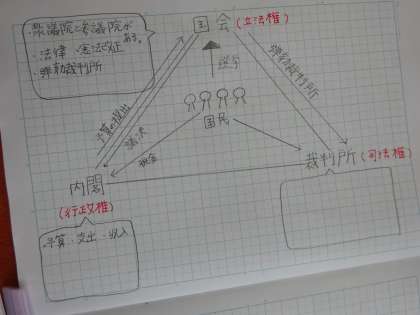 衆議院と参議院が
ある。
・法律・憲法改正
・弾劾裁判所
国会(立法権)
選挙
弾劾裁判所
予算の提出
議決
国民
税金
裁判所(司法権)
内閣
(行政権)
予算・支出・収入